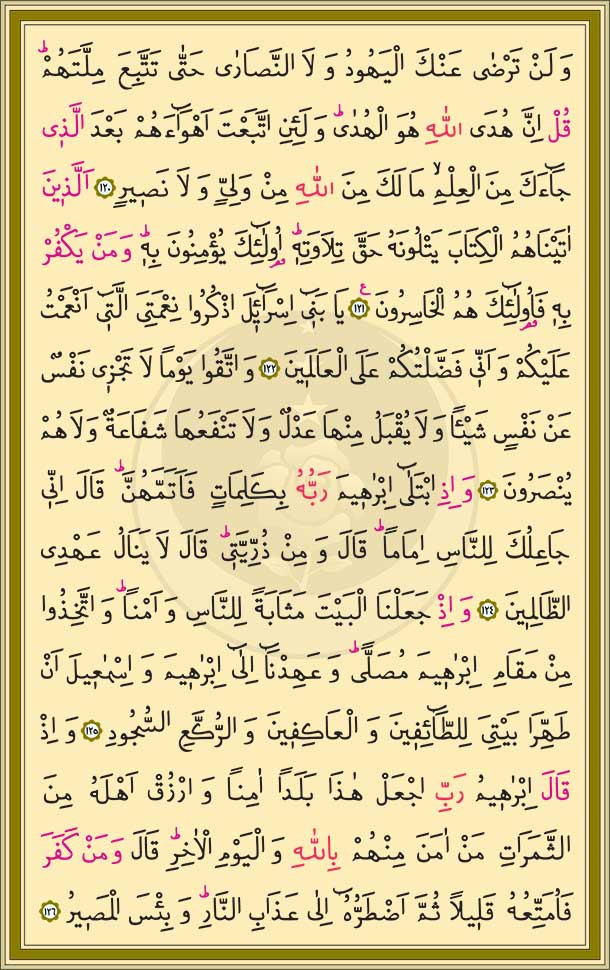 وَلَنْ تَرْضٰى عَنْكَ الْيَهُودُ وَلَا النَّصَارٰى حَتّٰى تَتَّبِعَ مِلَّتَهُمْۜ
قُلْ اِنَّ هُدَى اللّٰهِ هُوَ الْهُدٰىۜ وَلَئِنِ اتَّبَعْتَ اَهْوَٓاءَهُمْ بَعْدَ الَّذ۪ي
جَٓاءَكَ مِنَ الْعِلْمِۙ مَا لَكَ مِنَ اللّٰهِ مِنْ وَلِيٍّ وَلَا نَص۪يرٍ ﴿١٢٠﴾ اَلَّذ۪ينَ
اٰتَيْنَاهُمُ الْكِتَابَ يَتْلُونَهُ حَقَّ تِلَاوَتِه۪ۜ اُو۬لٰٓئِكَ يُؤْمِنُونَ بِه۪ۜ وَمَنْ يَكْفُرْ
بِه۪ فَاُو۬لٰٓئِكَ هُمُ الْخَاسِرُونَ ﴿١٢١﴾ ع يَا بَن۪ٓي اِسْرَٓائ۪لَ اذْكُرُوا نِعْمَتِيَ الَّت۪ٓي اَنْعَمْتُ
عَلَيْكُمْ وَاَنّ۪ي فَضَّلْتُكُمْ عَلَى الْعَالَم۪ينَ ﴿١٢٢﴾ وَاتَّقُوا يَوْماً لَا تَجْز۪ي نَفْسٌ
عَنْ نَفْسٍ شَيْـٔاً وَلَا يُقْبَلُ مِنْهَا عَدْلٌ وَلَا تَنْفَعُهَا شَفَاعَةٌ وَلَا هُمْ
يُنْصَرُونَ ﴿١٢٣﴾ وَاِذِ ابْتَلٰٓى اِبْرٰه۪يمَ رَبُّهُ بِكَلِمَاتٍ فَاَتَمَّهُنَّۜ قَالَ اِنّ۪ي
جَاعِلُكَ لِلنَّاسِ اِمَاماًۜ قَالَ وَمِنْ ذُرِّيَّت۪يۜ قَالَ لَا يَنَالُ عَهْدِي
الظَّالِم۪ينَ ﴿١٢٤﴾ وَاِذْ جَعَلْنَا الْبَيْتَ مَثَابَةً لِلنَّاسِ وَاَمْناًۜ وَاتَّخِذُوا
مِنْ مَقَامِ اِبْرٰه۪يمَ مُصَلًّىۜ وَعَهِدْنَٓا اِلٰٓى اِبْرٰه۪يمَ وَاِسْمٰع۪يلَ اَنْ
طَهِّرَا بَيْتِيَ لِلطَّٓائِف۪ينَ وَالْعَاكِف۪ينَ وَالرُّكَّعِ السُّجُودِ ﴿١٢٥﴾ وَاِذْ
قَالَ اِبْرٰه۪يمُ رَبِّ اجْعَلْ هٰذَا بَلَداً اٰمِناً وَارْزُقْ اَهْلَهُ مِنَ
الثَّمَرَاتِ مَنْ اٰمَنَ مِنْهُمْ بِاللّٰهِ وَالْيَوْمِ الْاٰخِرِۜ قَالَ وَمَنْ كَفَرَ
فَاُمَتِّعُهُ قَل۪يلاً ثُمَّ اَضْطَرُّهُٓ اِلٰى عَذَابِ النَّارِۜ وَبِئْسَ الْمَص۪يرُ ﴿١٢٦﴾